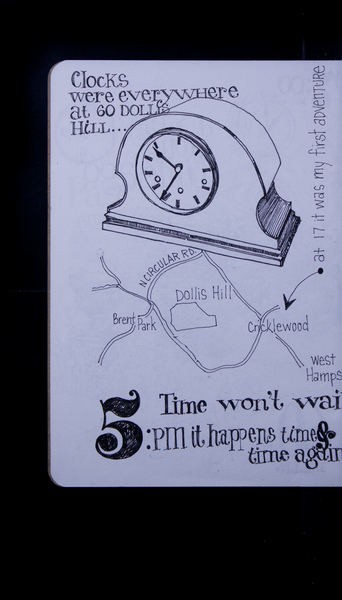 Clocks
were everywhere
at 60 Dollis
Hill...
at 17 it was my first adventure
N CIRCULAR RD.
Dollis Hill
Brent Park
Cricklewood
West
Hamps
Time won't wai
5:PM it happens time &
time again